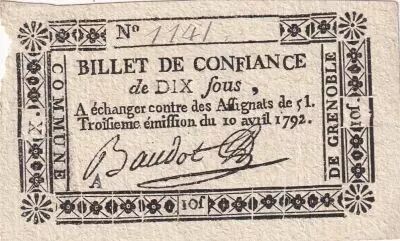 Nº 1141
BILLET DE CONFIANCE
de DIX sous,
A échanger contre des Assignats de 5 l.
Troisieme émission du 10 avril 1792.
Baudot
A
COMMUNE
DE GRENOBLE
X
10 s
10 s